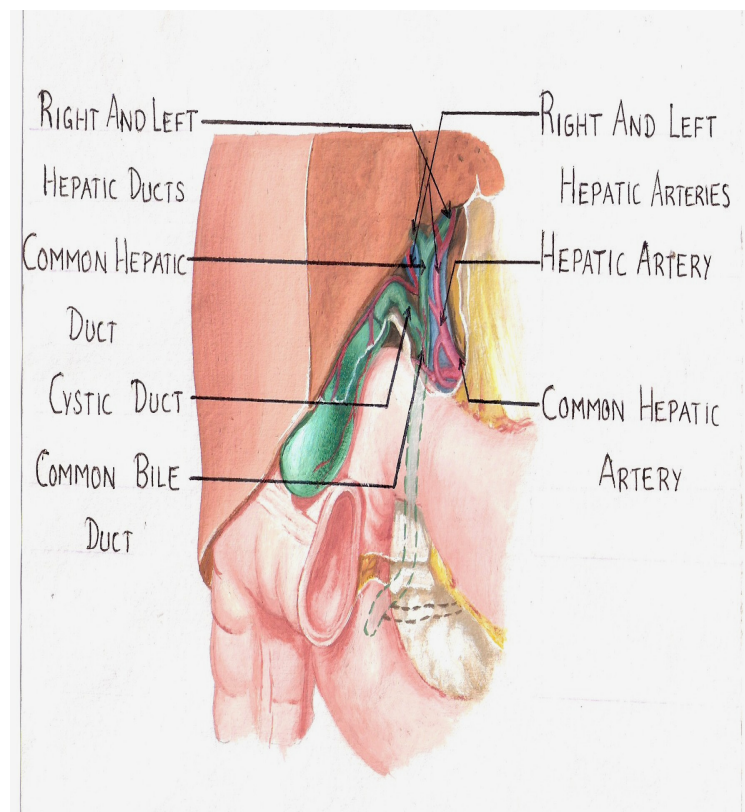 RIGHT AND LEFT
HEPATIC DUCTS
COMMON HEPATIC
DUCT
CYSTIC DUCT
COMMON BILE
DUCT
RIGHT AND LEFT
HEPATIC ARTERIES
HEPATIC ARTERY
COMMON HEPATIC
ARTERY